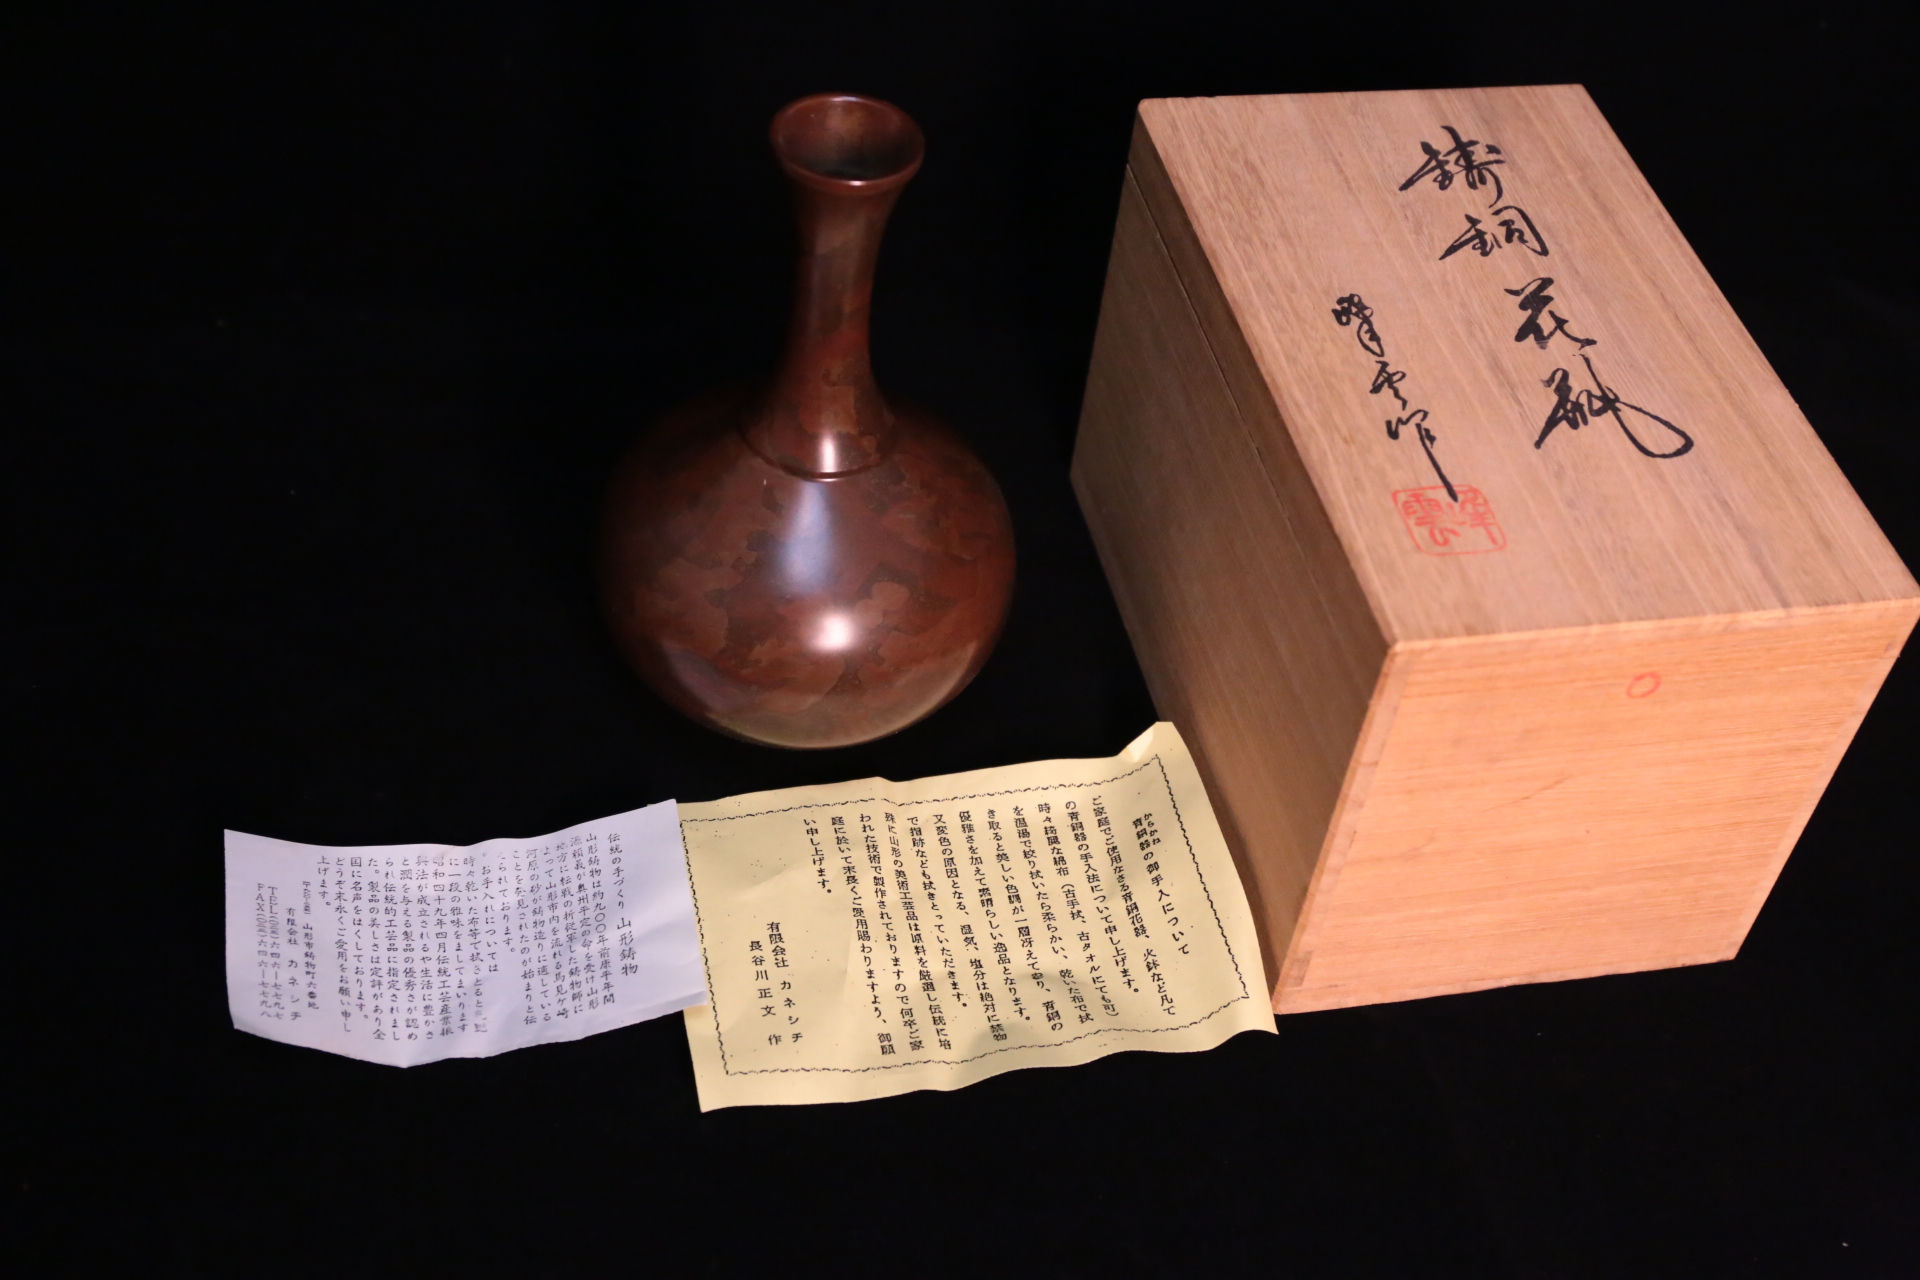 鋳銅花瓶
雲作
からかね
青銅器の御手入について
ご家庭でご使用なさる青銅花器、火鉢など凡て
の青銅器の手入法について申し上げます。
時々綺麗な綿布(古手拭、古タオルにても可)
を温湯で絞り拭いたら柔らかい、乾いた布で拭
き取ると美しい色調が一層冴えて参り、青銅の
優雅さを加えて素晴らしい逸品となります。
又変色の原因となる、湿気、塩分は絶対に禁物
で指跡なども拭きとっていただきます。
殊に山形の美術工芸品は原料を厳選し伝統に培
われた技術で製作されておりますので何卒ご家
庭に於いて末長くご愛用賜わりますよう、御願
い申し上げます。
有限会社 カネシチ
長谷川正文 作
伝統の手づくり 山形鋳物
山形鋳物は約九〇〇年前康平年間
源頼義が奥州平定の命を受け山形
地方に転戦の折従軍した鋳物師に
よって山形市内を流れる馬見ケ崎
河原の砂が鋳物造りに適している
ことを発見されたのが始まりと伝
えられております。
お手入れについては
時々乾いた布等で拭きとると
に一段の雅味をましてまいります
昭和四十九年四月伝統工芸産業振
興法が成立されるや生活に豊かさ
と潤を与える製品の優秀さが認め
られ伝統的工芸品に指定されまし
た。製品の美しさは定評があり全
国に名声をはくしております。
どうぞ末永くご愛用をお願い申し
上げます。
山形市鋳物町六番地
有限会社 カネシチ
TEL 六四六ー七七九七
FAX 六四六ー七七九八